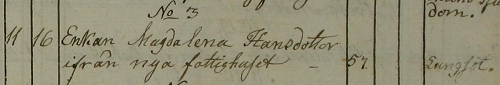 No 3
dom.
11 16 Enkan Magdalena Hansdotter
ifrån nya fattighuset – 57. Lungsot.